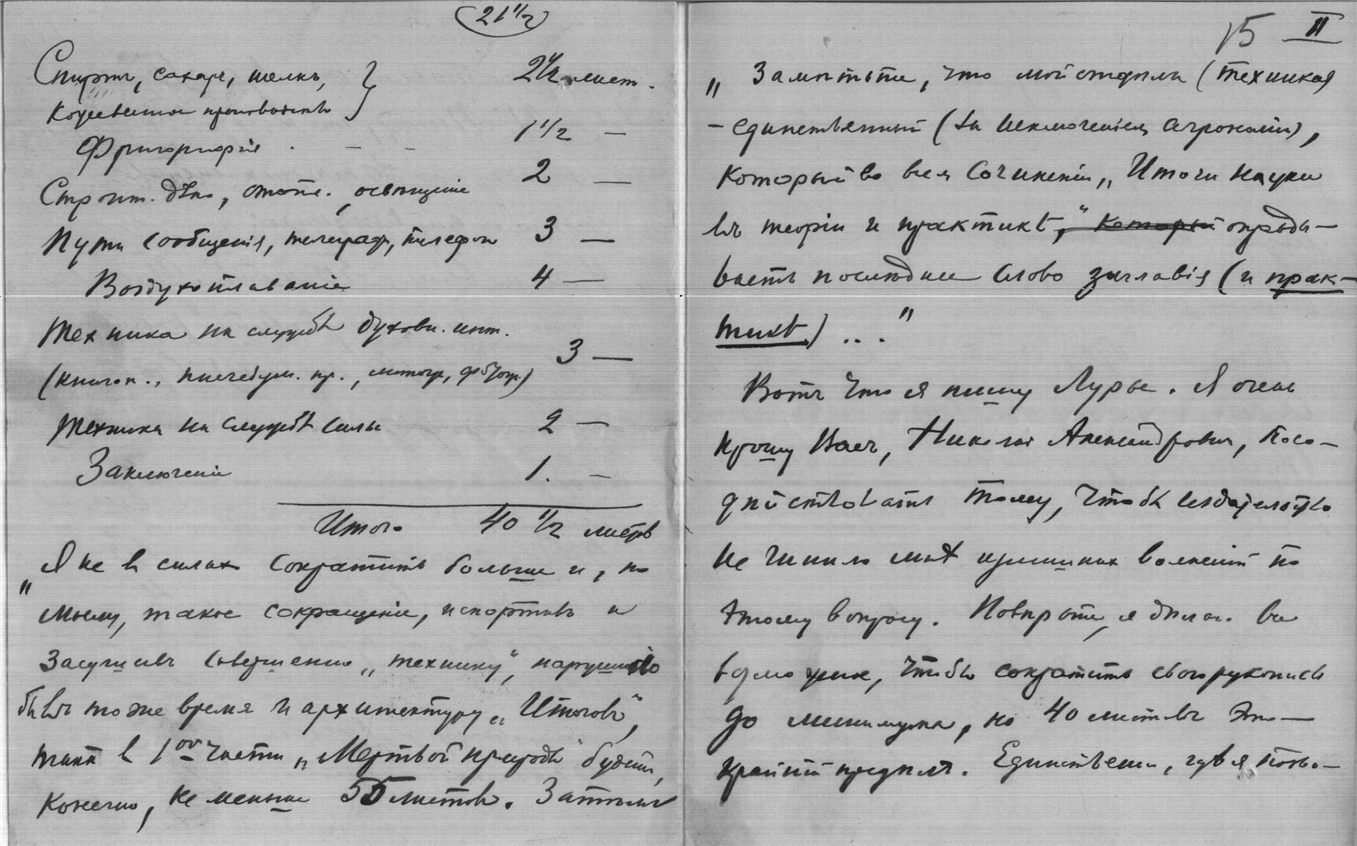 21 1/2
Спиртъ, сахаръ, шелкъ, } 2 1/2 лист.
Кожевенное производство
Фригорифія . – – 1 1/2 —
Строит. дѣло, отопл., освѣщеніе 2 —
Пути сообщенія, телеграфъ, телефон 3 —
Воздухоплаваніе 4 —
Техника на службѣ духовн. инт. 3 —
(книгоп., писчебум. пр., фотогр)
Техника на службѣ силы 2 —
Заключеніе 1. —
Итого 40 1/2 листовъ
„Я не в силахъ сократить больше и, по
моему, такое сокращеніе, испортивъ и
засушивъ совершенно „технику“, нарушило
бы въ то же время и архитектуру „Итоговъ“,
такъ в 1ой части „Мертвой природы“ будетъ,
конечно, не меньше 55 листовъ. Затѣмъ
15 II
„Замѣтьте, что мой отдѣлъ (техника)
– единственный (за исключеніемъ агрономіи),
который во всемъ сочиненіи „Итоги науки
въ теоріи и практикѣ,“ который оправды-
ваетъ послѣднее слово заглавія (и прак-
тикѣ) ..."
Вотъ что я пишу Лурье. Я очень
прошу Васъ, Николай Александровичъ, посо-
дѣйствовать тому, чтобы издательство
не чинило мнѣ излишнихъ волненій по
этому вопросу. Повѣрьте, я дѣлаю все
возможное, чтобы сократить свою рукопись
до минимума, но 40 листовъ это —
крайній предѣлъ. Единственно, гдѣ я позво-